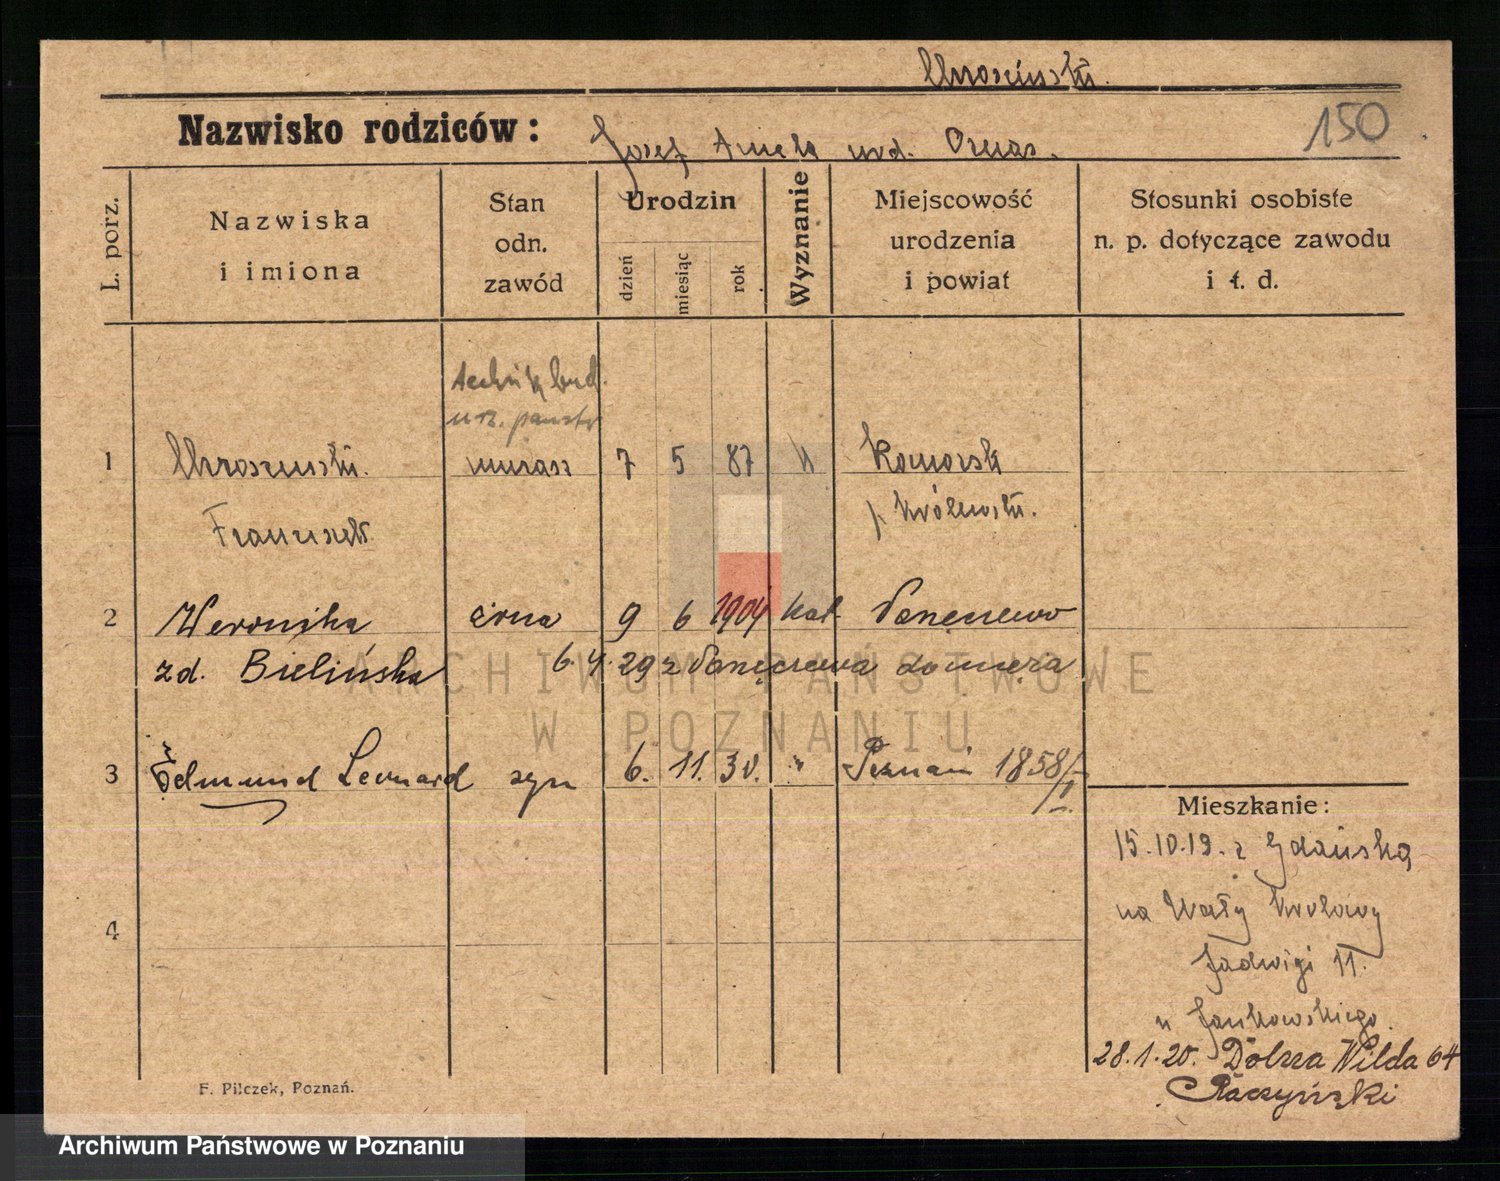 150
Nazwisko rodziców: Józef Aniela
L. porz.
Nazwiska i imiona
Stan odn. zawód
Urodzin
dzień
miesiąc
rok
Wyznanie
Miejscowość urodzenia i powiat
Stosunki osobiste n. p. dotyczące zawodu i t. d.
technik bud.
1 murarz 7 5 87 k
Franciszek p. Królewski.
2 Weronika żona 9 6 1904 kat.
zd. Bielińska 6. 4. 29 z
3 Edmund Leonard syn 6. 11. 30. " Poznań 1858/I
4
Mieszkanie:
15.10.19. z Gdańska
na Wały Królowy
Jadwigi 11.
u Jankowskiego.
28.1.20. Dolna Wilda 64
Raczyński
F. Pilczek, Poznań.
ARCHIWUM PAŃSTWOWE
W POZNANIU
Archiwum Państwowe w Poznaniu